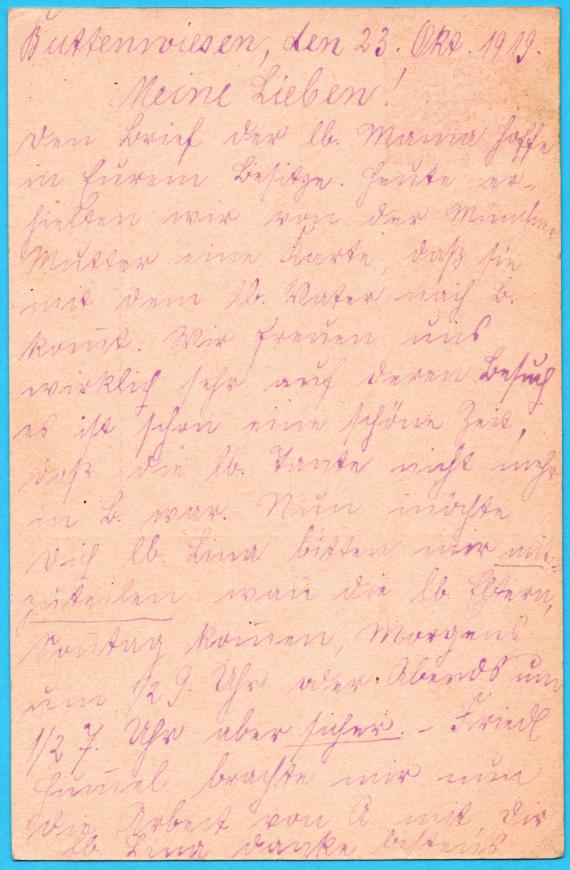 Buttenwiesen, den 23. Okt. 1919.
Meine Lieben!
Den Brief der lb. Mama hoffe
in Eurem Besitze. Heute er-
hielten wir von der
Mutter eine Karte, daß sie
mit dem lb. Vater nach B.
kom̄t. Wir freuen uns
wirklich sehr auf deren Besuch
es ist schon eine schöne Zeit,
daß die lb. Tante nicht mehr
in B. war. Nun möchte
Dich lb. Lina bitten mir mit-
zuteilen wan̄ die lb. Eltern,
Son̄tag kom̄en, Morgens
um 1/2 9. Uhr oder Abends um
1/2 7. Uhr aber sicher. – Friedl
brachte mir nun
die Arbeit von A. mit Dir
lb. Lina danke bestens